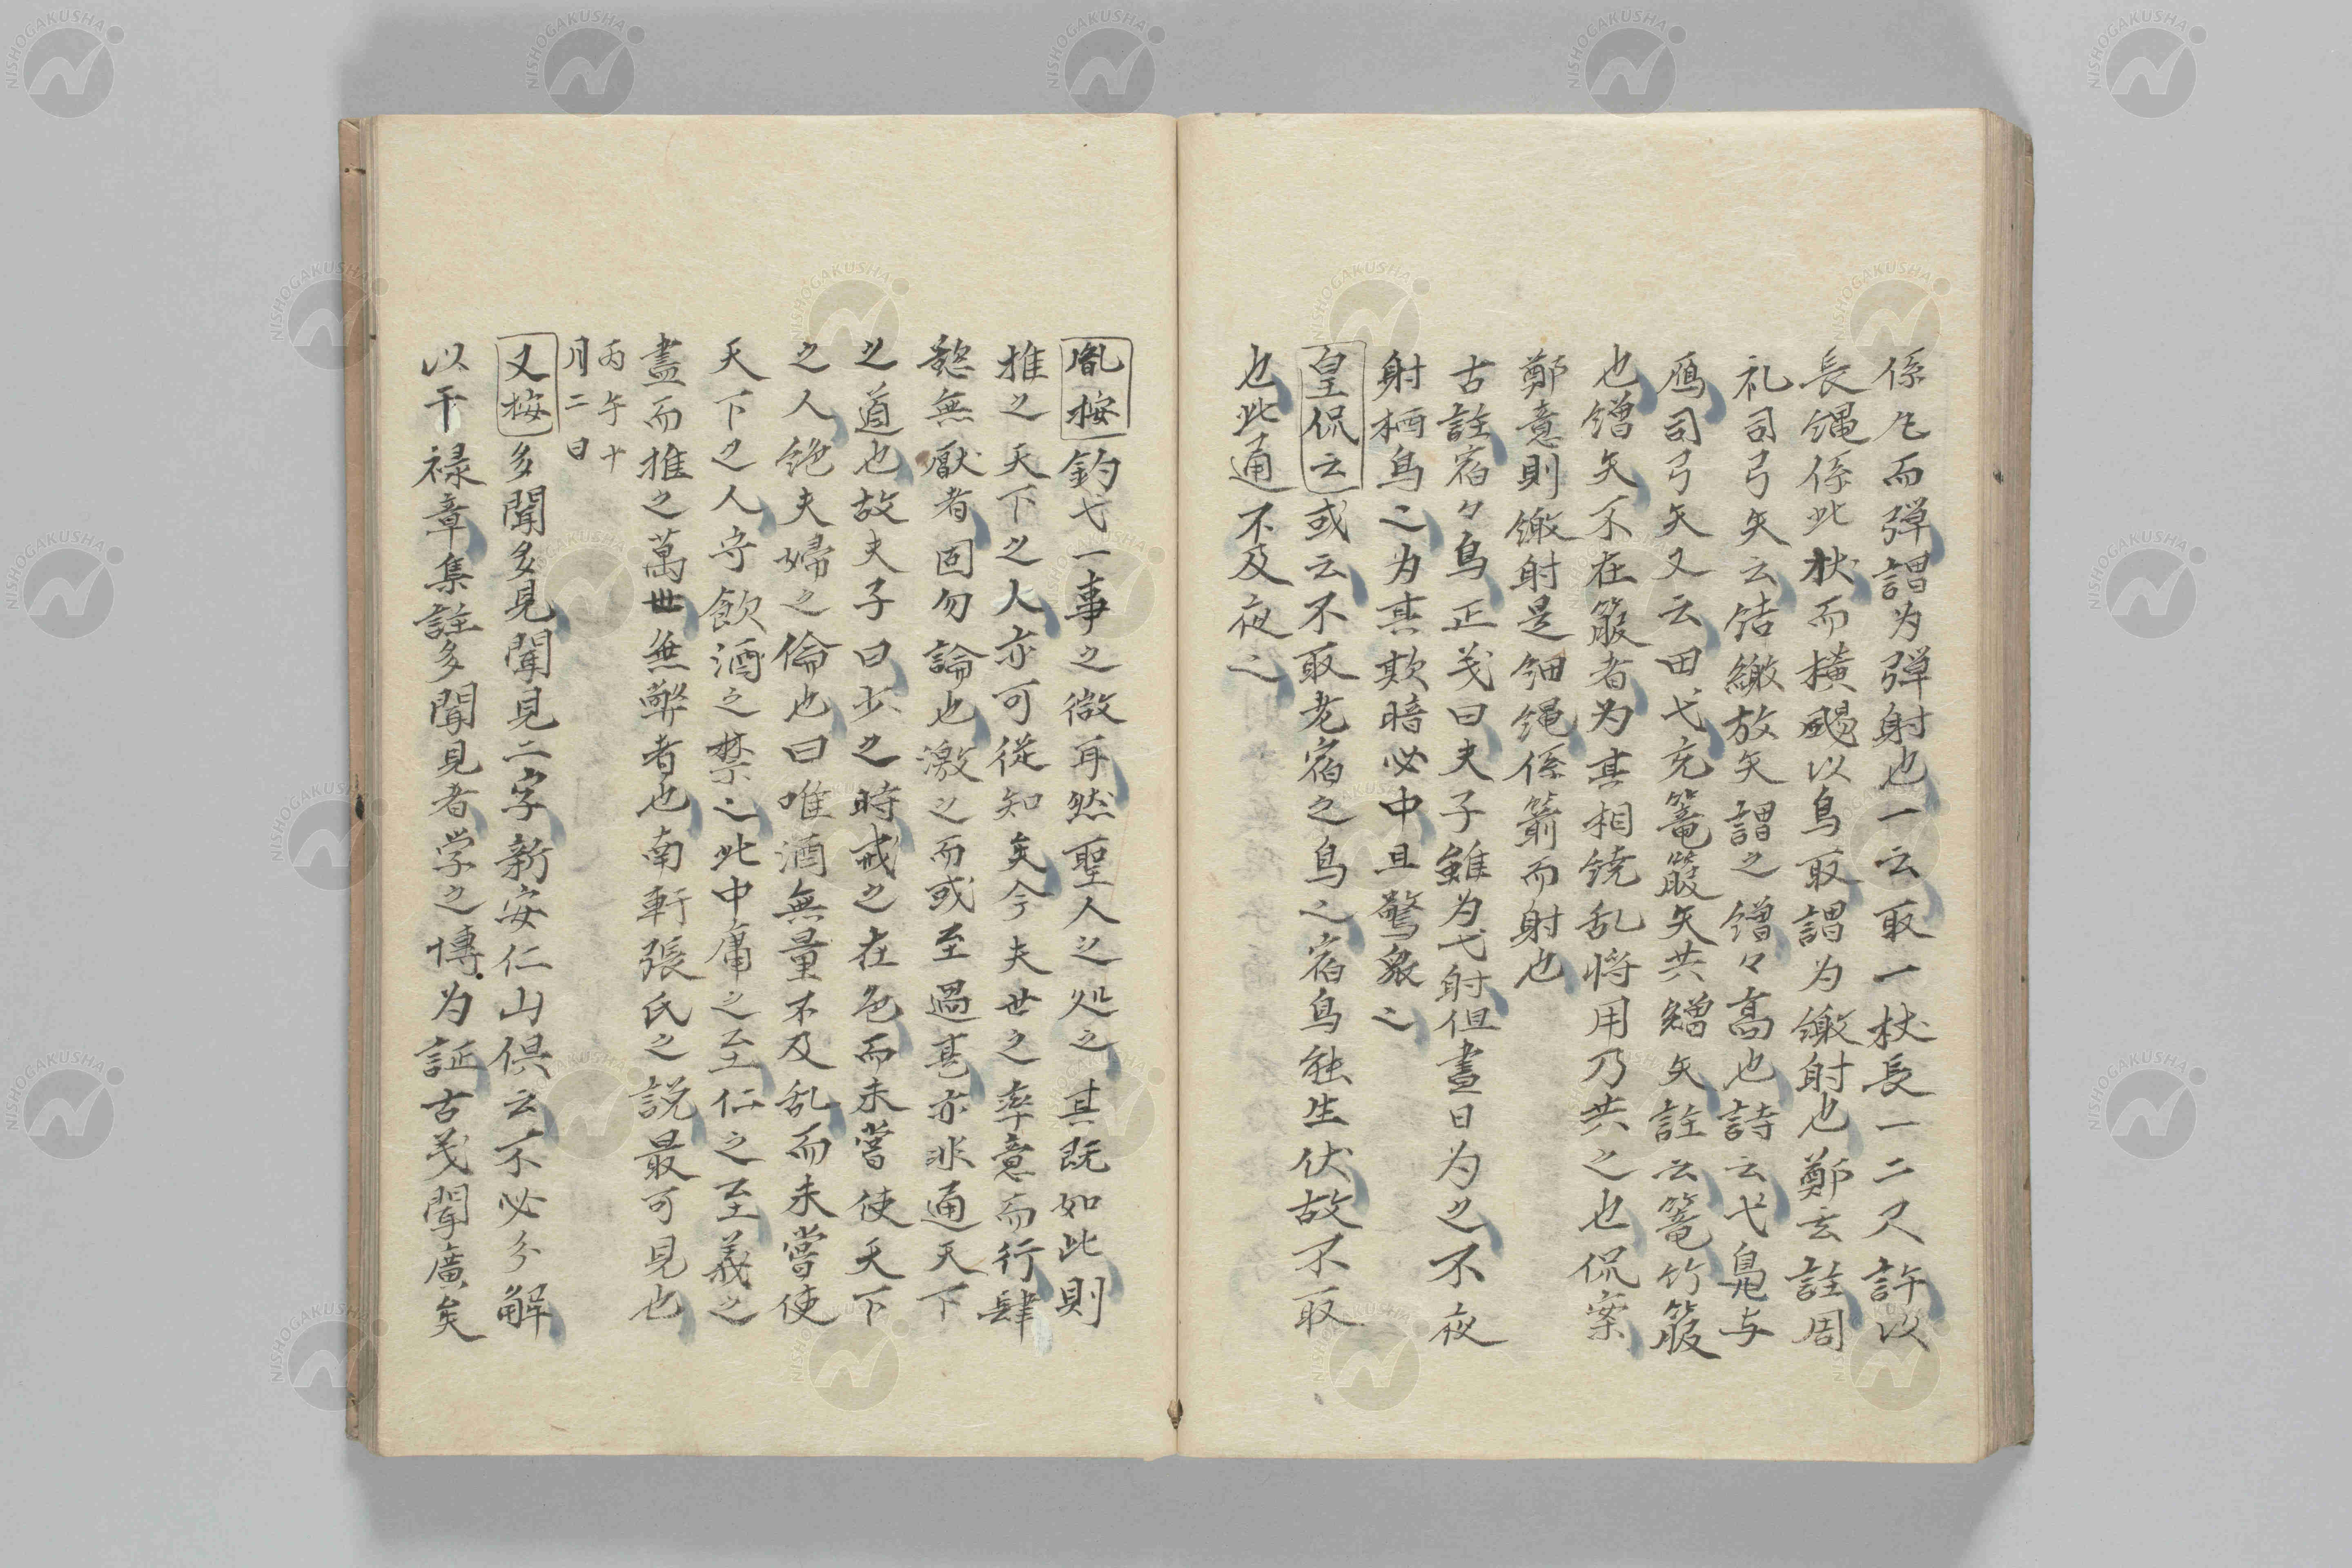 係丸而弾謂为弾射也一云取一杖長一二尺許以
長䋲係此杖而横颺以鳥取謂为繳射也鄭玄註周
礼司弓矢云结繳放矢謂之矰々髙也詩云弋鳧与
鴈司弓矢又云田弋充篭箙矢共矰矢註云篭竹箙
也矰矢不在箙者为其相绕乱将用乃共之也侃案
鄭意則繳射是细䋲係箭而射也
古註宿々鳥正义曰夫子雖为弋射但晝日为之不夜
射栖鳥之为其欺暗必中且驚衆之
皇侃云或云不取老宿之鳥之宿鳥能生伏故不取
也此通不及夜之
胤按釣弋一事之微耳然聖人之処之其既如此則
推之天下之人亦可従知矣今夫世之率意而行肆
慾無厭者固勿論也激之而或至過甚亦非通天下
之道也故夫子曰少之時戒之在色而未嘗使天下
之人绝夫婦之倫也曰唯酒無量不及乱而未嘗使
天下之人守飲酒之禁之此中庸之至仁之至義之
盡而推之萬世無弊者也南軒張氏之説最可見也
丙午十
月二日
又按多聞多見聞見二字新安仁山倶云不必分解
以干禄章集註多聞見者学之博为証古义聞廣矣